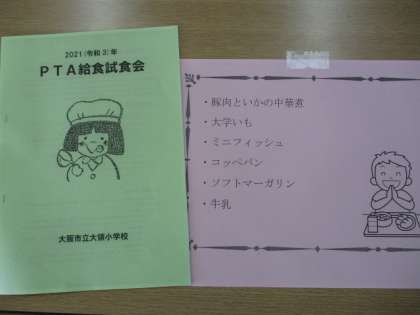 2021(令和3)年
PTA給食試食会
大阪市立大領小学校
・豚肉といかの中華煮
・大学いも
・ミニフィッシュ
・コッペパン
・ソフトマーガリン
・牛乳